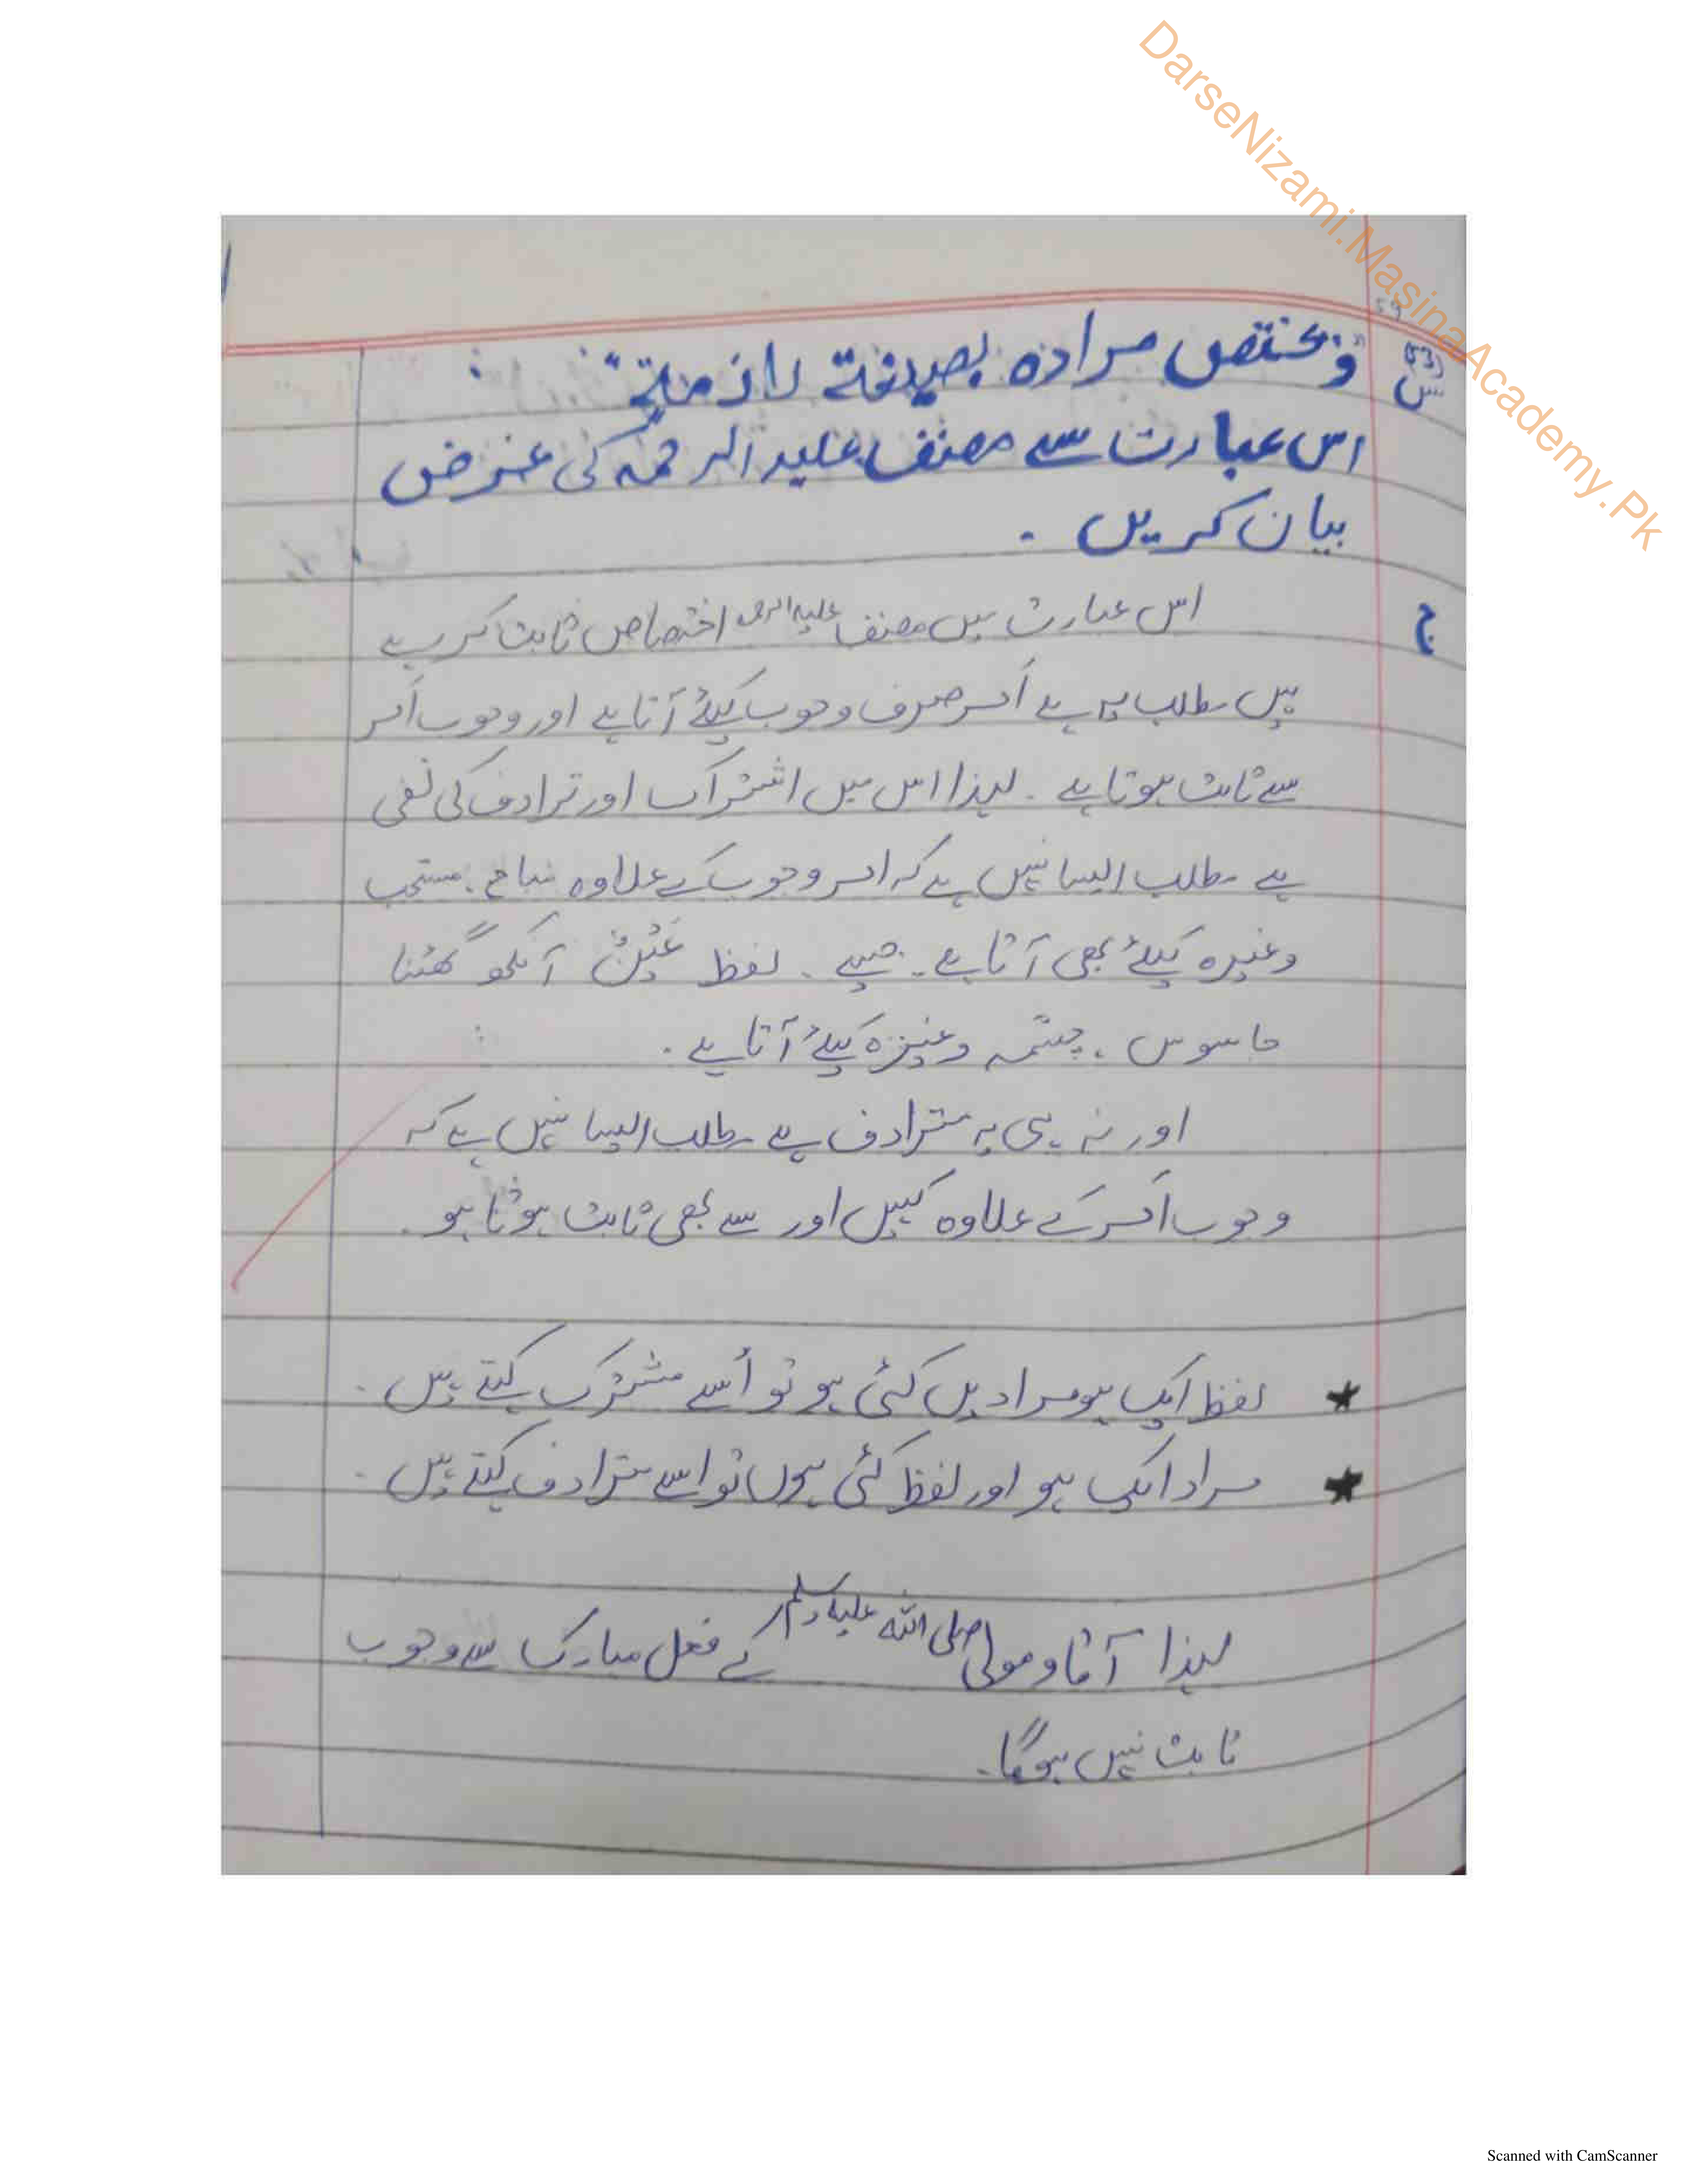 DarseNizami.MasinaAcademy.Pk
س 53) "وَیختص مرادہ بصیغة لازمةٍ":
اس عبارت سے مصنف علیہ الرحمہ کی غرض
بیان کریں ۔
ج اس عبارت میں مصنف علیہ الرحمہ اختصاص ثابت کر رہے
ہیں مطلب یہ ہے اَمر صرف وجوب کیلئے آتا ہے اور وجوب اَمر
سے ثابت ہوتا ہے ۔ لہذا اس میں اشتراک اور ترادف کی نفی
ہے مطلب ایسا نہیں ہے کہ امر وجوب کے علاوہ مباح ، مستحب
وغیرہ کیلئے بھی آتا ہے ۔ جیسے ۔ لفظ عَیْنٌ آنکھ گھٹنا
جاسوس ، چشمہ وغیرہ کیلئے آتا ہے ۔
اور نہ ہی یہ مترادف ہے مطلب ایسا نہیں ہے کہ
وجوب اَمر کے علاوہ کہیں اور سے بھی ثابت ہوتا ہو ۔
★ لفظ ایک ہو مرادیں کئی ہو تو اُسے مشترک کہتے ہیں ۔
★ مراد ایک ہو اور لفظ کئی ہوں تو اسے مترادف کہتے ہیں ۔
لہذا آقا و مولی صلی اللہ علیہ وسلم کے فعل مبارک سے وجوب
ثابت نہیں ہوگا ۔
Scanned with CamScanner